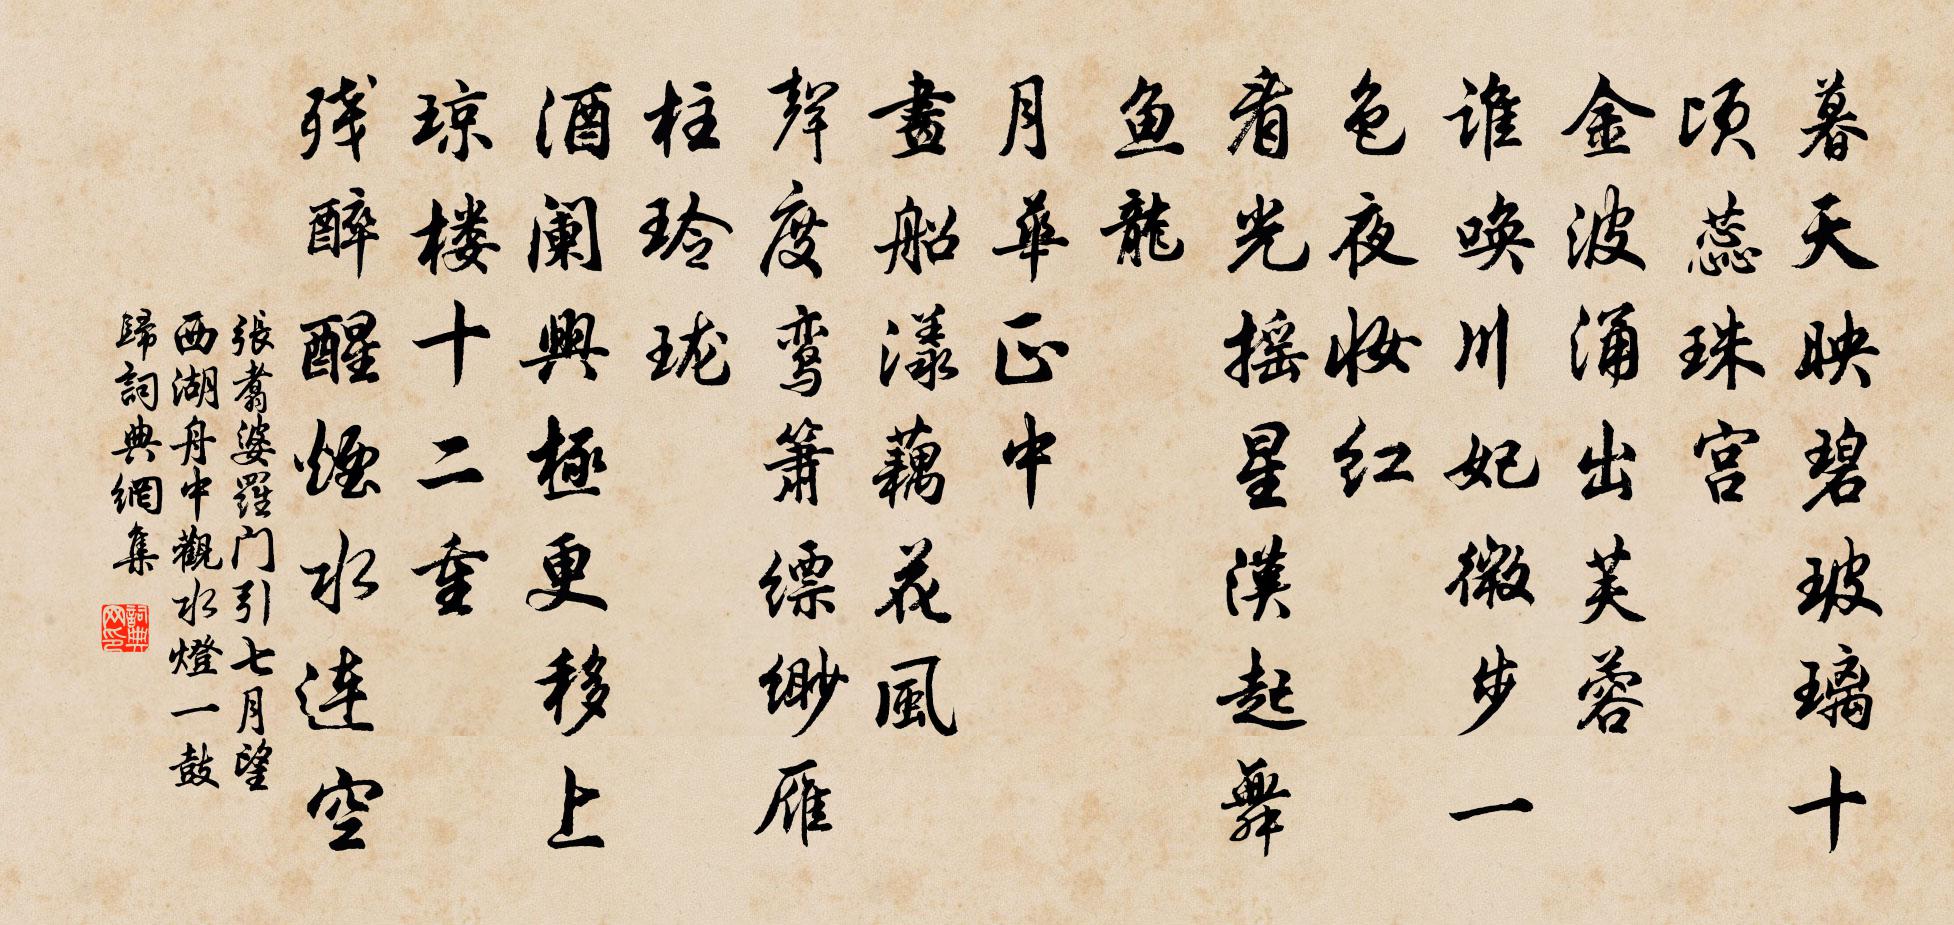 暮天映碧玻璃十
顷蕊珠宫
金波涌出芙蓉
谁唤川妃微步一
色夜妆红
看光摇星漢起舞
鱼龍
月华正中
畫船漾藕花風
聲度鸾箫缥缈雁
柱玲珑
酒阑興極更移上
琼楼十二重
残醉醒烟水连空
張翥婆羅门引七月望
西湖舟中觀水燈一鼓
歸詞典網集
詞典网印